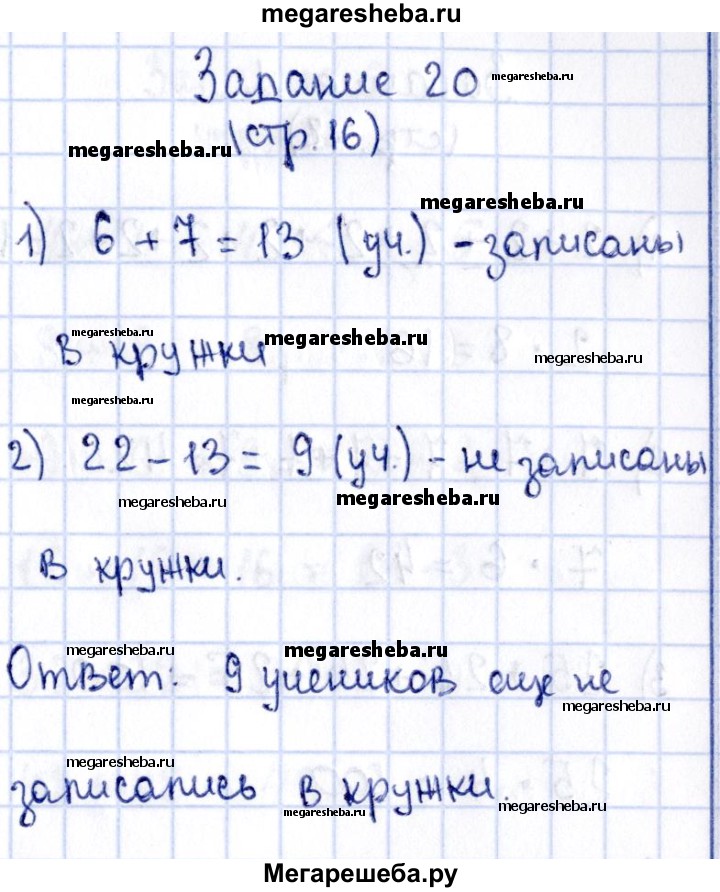 megaresheba.ru
Задание 20 megaresheba.ru
(стр. 16)
megaresheba.ru
megaresheba.ru
1) 6 + 7 = 13 (уч.) - записаны
megaresheba.ru megaresheba.ru
в кружки megaresheba.ru
megaresheba.ru
2) 22 - 13 = 9 (уч.) - не записаны
megaresheba.ru megaresheba.ru
в кружки.
megaresheba.ru megaresheba.ru
Ответ: 9 учеников еще не
megaresheba.ru
megaresheba.ru
записались в кружки.
megaresheba.ru megaresheba.ru
Мегарешеба.ру